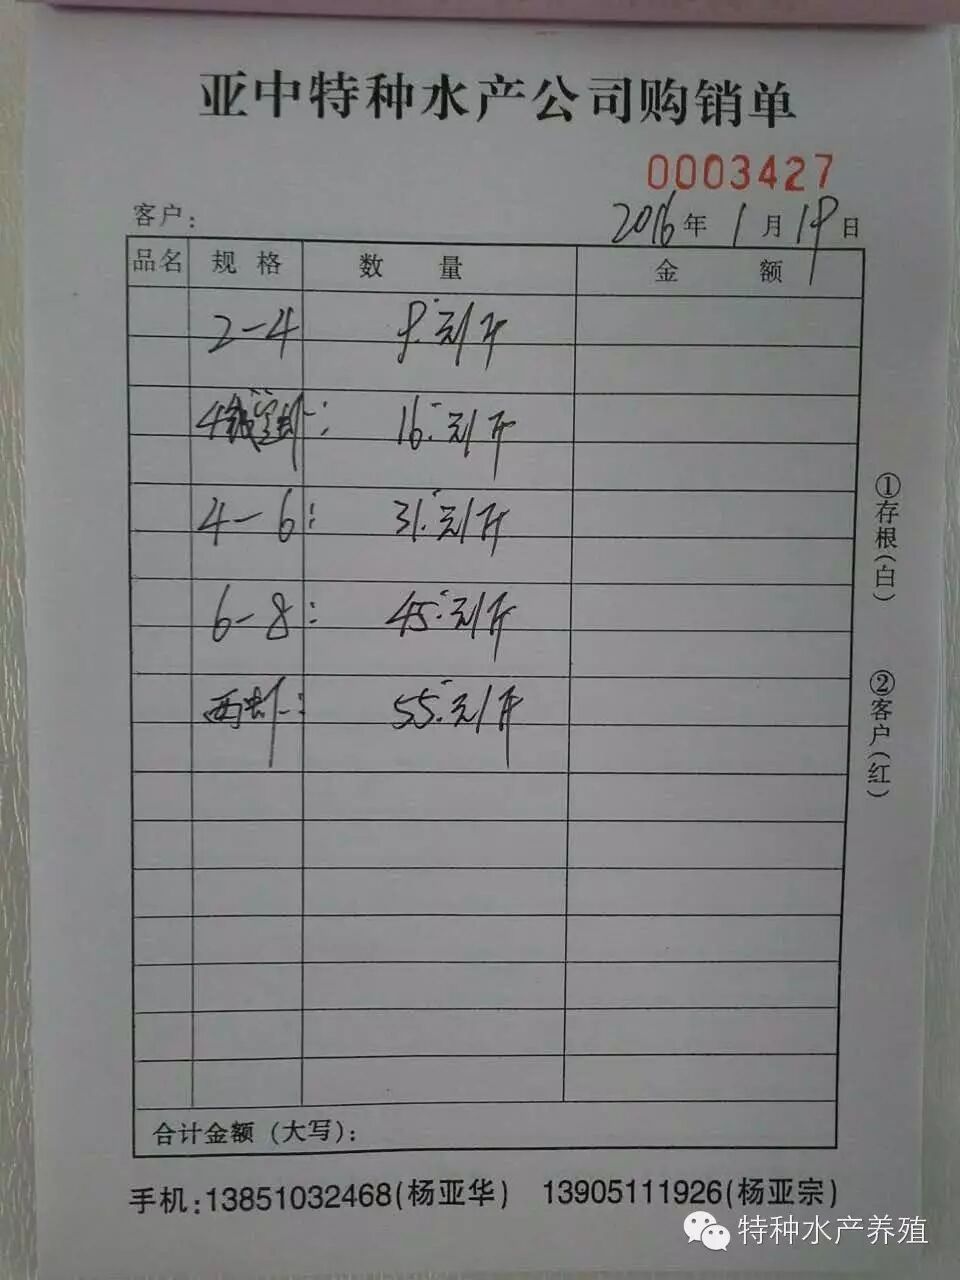 亚中特种水产公司购销单
0003427
客户: 2016年1月19日
品名 规格 数量 金额
2-4 9.元/斤
4钱 : 16.元/斤
4-6: 31.元/斤
6-8: 45.元/斤
: 55.元/斤
合计金额(大写):
手机:13851032468(杨亚华) 13905111926(杨亚宗)
①存根(白)
②客户(红)
特种水产养殖